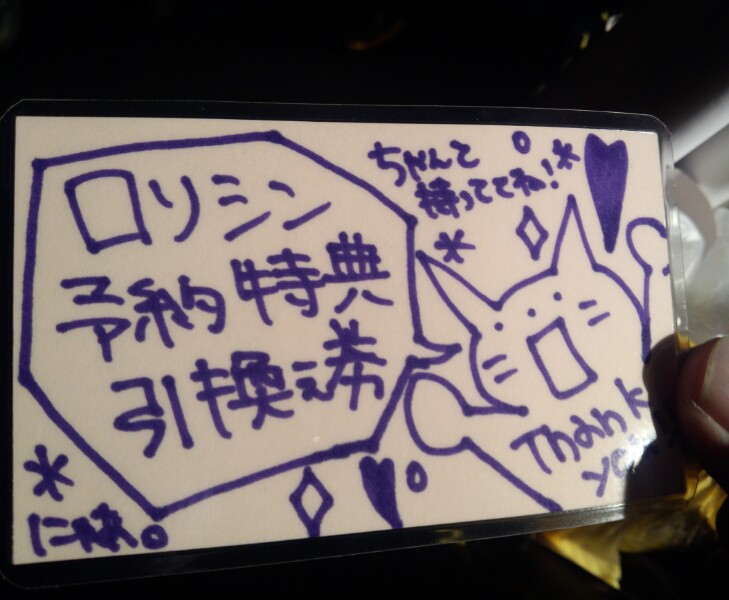 ロリシン
予約特典
引換え券
ちゃんと
待っててね!
Thank